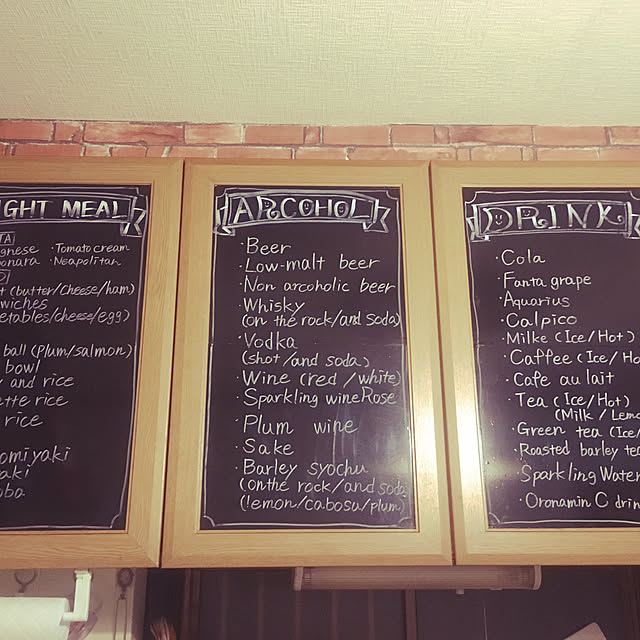 GHT MEAL
TA
gnese ・Tomato cream
onara ・Neapolitan
t (butter/cheese/ham)
wiches
etables/cheese/egg)
ball (Plum/salmon)
bowl
and rice
ette rice
rice
omiyaki
aki
oba
ARCOHOL
・Beer
・Low-malt beer
・Non arcoholic beer
・Whisky
(on the rock/and soda)
・Vodka
(shot/and soda)
・Wine (red/white)
・Sparkling wine Rose
・Plum wine
・Sake
・Barley syochu
(on the rock/and soda
(lemon/cabosu/plum)
DRINK
・Cola
・Fanta grape
・Aquarius
・Calpico
・Milke (Ice/Hot)
・Caffee (Ice/Ho
・Cafe au lait
・Tea (Ice/Hot)
(Milk/Lemo
・Green tea (Ice/
・Roasted barley tea
・Sparkling Water
・Oronamin C drin